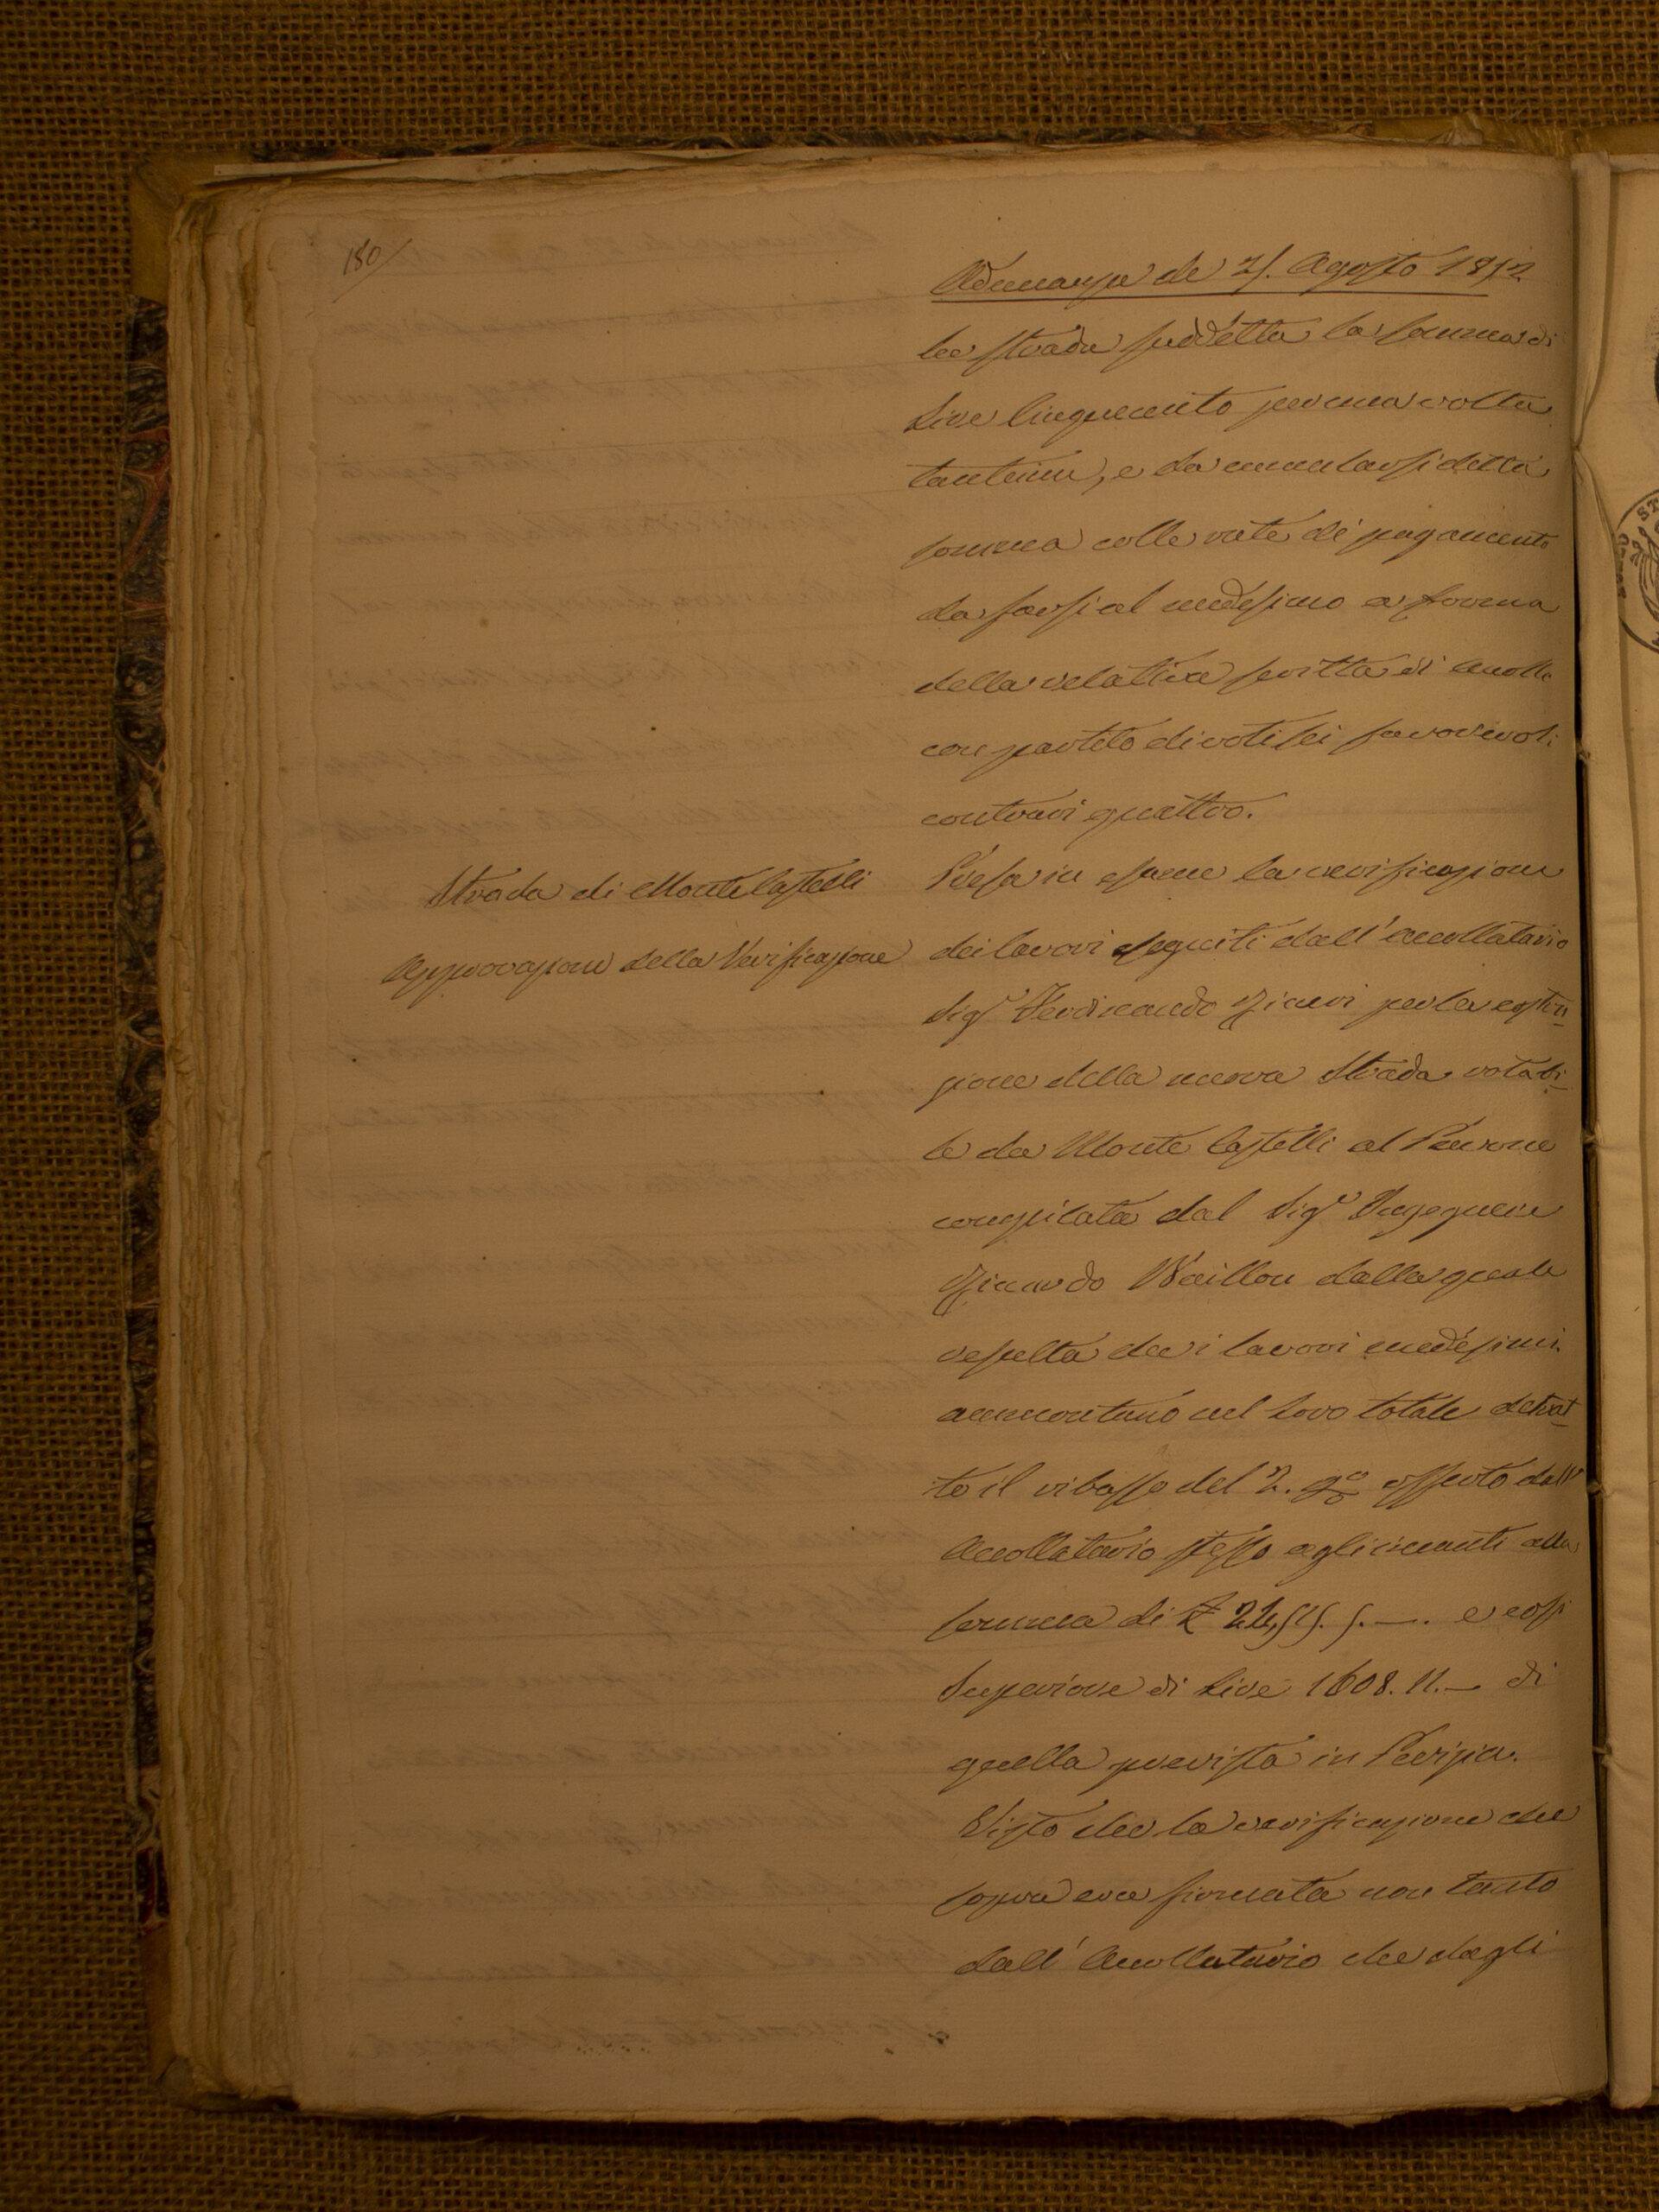 180
Adunanza de 25. Agosto 1852
la strada suddetta la somma di
Lire Cinquecento per una volta
tantum, e da cumularsi detta
somma colle rate di pagamento
da farsi al medesimo a forma
della relativa scritta di accollo
con partito di voti sei favorevoli
contrari quattro.
Strada di Monte Castelli
Approvazione della Verificazione
Presa in esame la verificazione
dei lavori eseguiti dall'accollatario
Sig.r Ferdinando per la costru-
zione della nuova Strada rotabi-
le da Monte Castelli al Pavone
compilata dal Sig.r Ingegnere
Riccardo Vaillon dalla quale
resulta che i lavori medesimi
ammontano nel loro totale detrat-
to il ribasso del 2. p% offerto dall'
Accollatario stesso agl'incanti alla
somma di £ e cosi
Superiore di Lire 1608. 11. — di
quella prevista in Perizia.
Visto che la verificazione che
sopra era firmata non tanto
dall'Accollatario che dagli